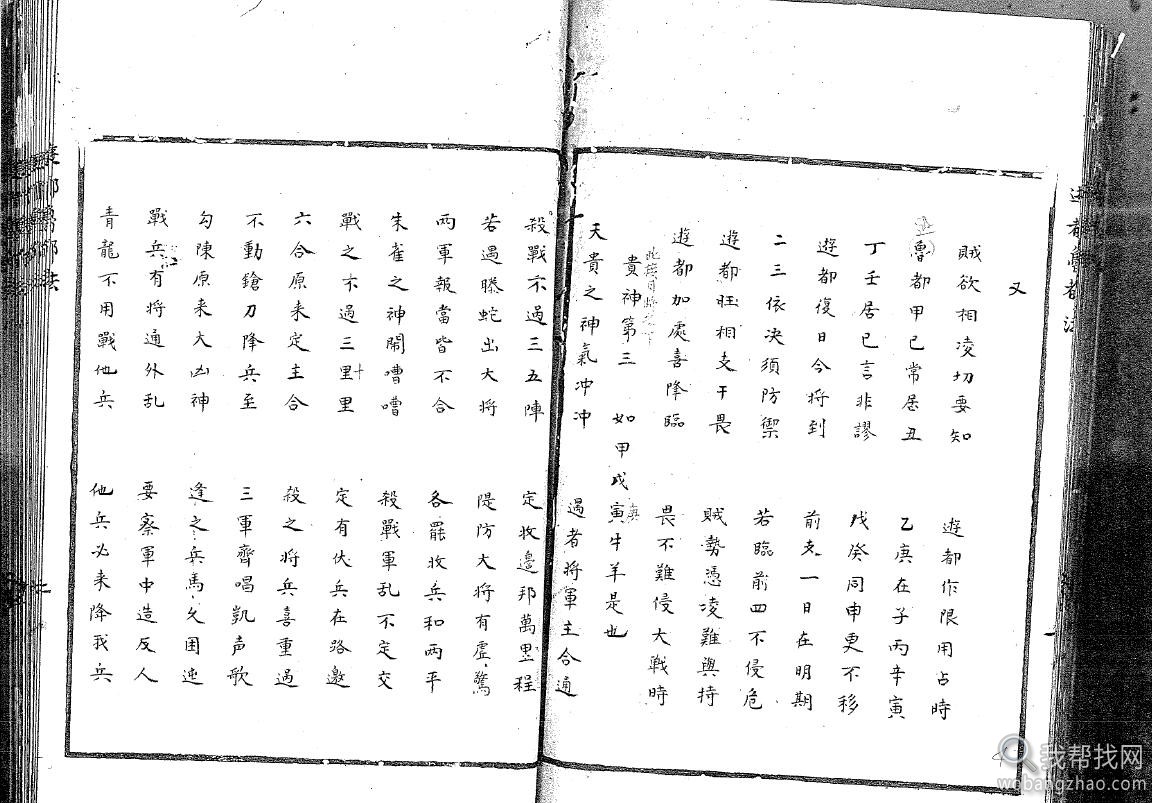 又
賊欲相凌切要知 遊都作限用占時
魯都甲已常居丑 乙庚在子丙辛寅
丁壬居已言非謬 戊癸同申更不移
遊都復日今将到 前支一日在明期
二三依决須防禦 若臨前四不侵危
遊都旺相支干畏 賊勢憑凌難與持
遊都加處喜降臨 畏不難侵大戦時
貴神第三 如甲戊寅牛羊是也
天貴之神氣冲冲 遇者将軍主合通
殺戰不過三五陣 定收邊邦萬里程
若遇螣蛇出大将 隄防大将有虚驚
两軍報當皆不合 各罷收兵和两平
朱雀之神鬧嘈嘈 殺戰軍乱不定交
戰之不過三里里 定有伏兵在路邀
六合原来定主合 殺之将兵喜重過
不動鎗刀降兵至 三軍齊唱凱声歌
勾陳原来大凶神 逢之兵馬欠困迍
戰兵有将通外乱 要察軍中造反人
青龍不用戰他兵 他兵必来降我兵
我帮找网
wobangzhao.com